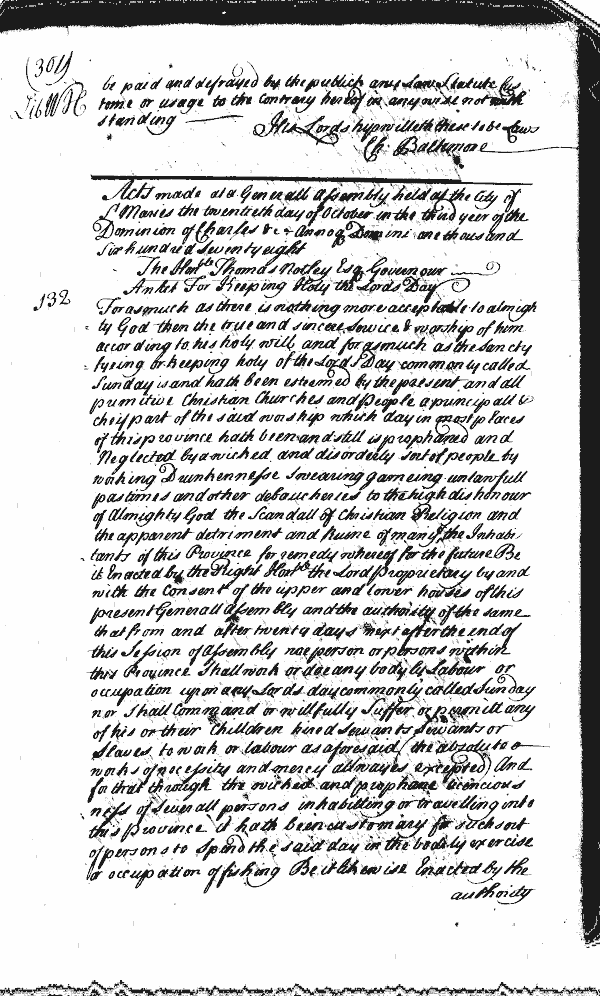 (304)
Lib W H
be paid and defrayed by the publick any Law Statute Cus
tome or usage to the Contrary hereof in any wise not with
standing
His Lordship willeth these to be Laws
Ch: Baltemore
Acts made at a Generall Assembly held att the City of
St Maries the twentieth day of October in the third year of the
Dominion of Charles &c Annoq Domini one thousand
Six hundred Seventy eight
The Honble Thomas Notley Esq Governour
132
An Act For Keeping Holy the Lords Day
Forasmuch as there is nothing more acceptable to almigh
ty God then the true and sincere Service & worship of him
according to his holy will and forasmuch as the Sancty
fyeing or keeping holy of the Lords Day commonly called
Sunday is and hath been esteemed by the present and all
primitive Christian Churches and people a principall &
cheif part of the said worship which day in most places
of this province hath been and still is prophaned and
Neglected by a wicked and disorderly sort of people by
working Drunkennesse Swearing gameing unlawfull
pastimes and other debaucheries to the high dishonour
of Almighty God the Scandall of Christian Religion and
the apparent detriment and Ruine of many of the Inhabi
tants of this Province for remedy whereof for the future Be
it Enacted by the Right Honble the Lord Proprietary by and
with the Consent of the upper and lower houses of this
present Generall Assembly and the authority of the same
that from and after twenty days next after the end of
this Session of Assembly noe person or persons within
this Province Shall work or doe any bodyly Labour or
occupation upon any Lords day commonly called Sunday
nor Shall Command or willfully Suffer or permitt any
of his or their Children hired Servants Servants or
Slaves to work or labour as aforesaid (the absolute
works of necessity and mercy allwayes excepted) And
for that through the wicked and prophane licencious
ness of severall persons inhabitting or travelling into
this province it hath been customary for such sort
of persons to Spend the said day in the bodily exercise
or occupation of fishing Be it likewise Enacted by the
authority